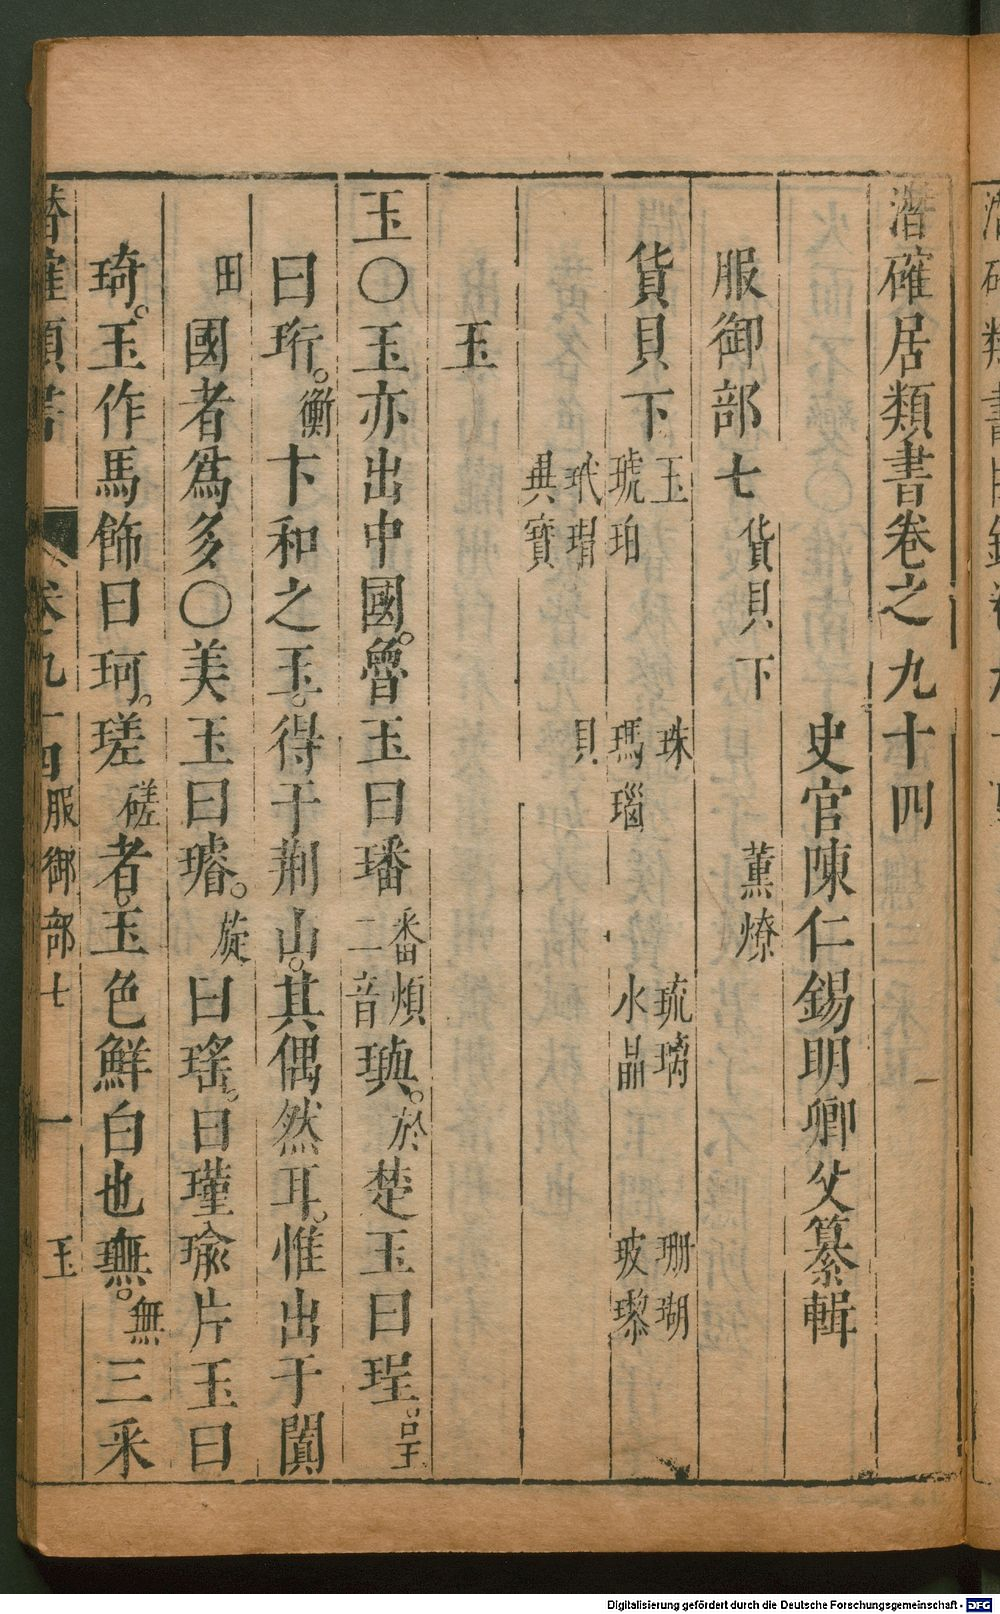 潛確居類書卷之九十四
史官陳仁錫明卿父纂輯
服御部七 貨貝下 薰燎
貨貝下 玉 珠 琉璃 珊瑚
琥珀 瑪瑙 水晶 玻瓈
玳瑁 貝
典寶
玉
玉〇玉亦出中國。魯玉曰璠番煩二音璵。於楚玉曰珵。呈
曰珩。衡卞和之玉。得于荆山。其偶然耳。惟出于闐
田國者爲多〇美玉曰璿。旋曰瑤。曰瑾瑜片玉曰
琦。玉作馬飾曰珂。瑳磋者。玉色鮮白也璑。無三采
潛確類書 卷九十四 服御部七 一 玉
Digitalisierung gefördert durch die Deutsche Forschungsgemeinschaft - DFG